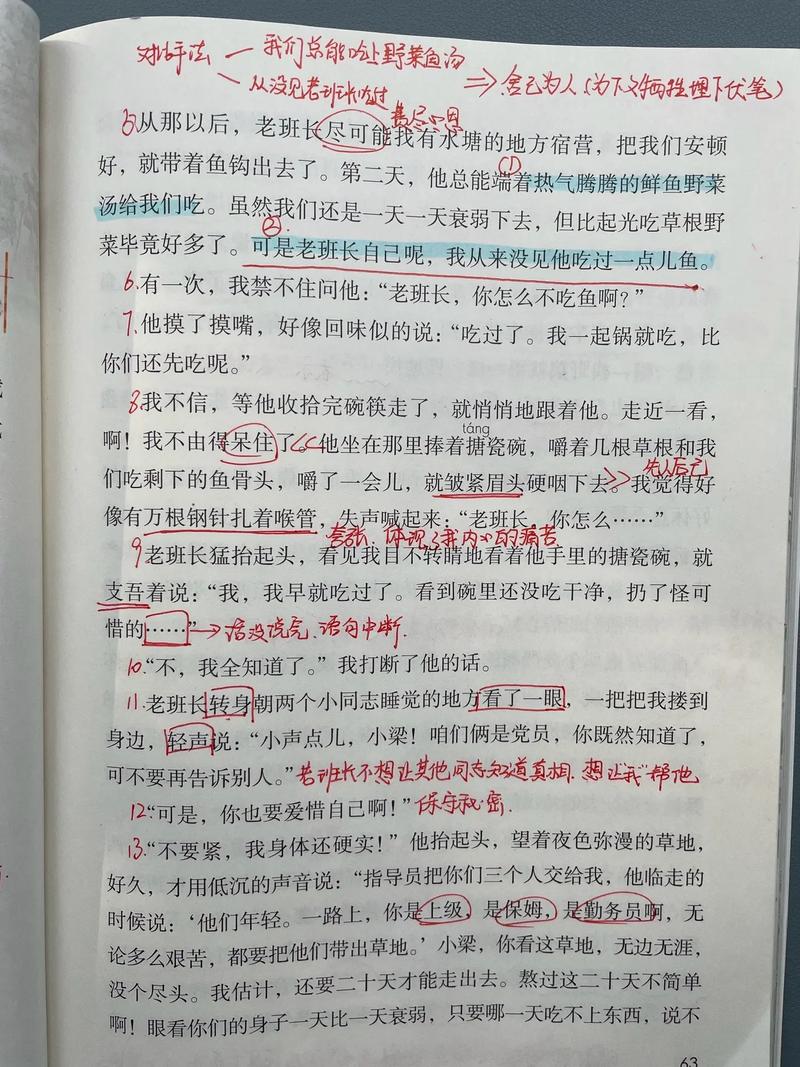 对比手法 — 我们总能吃上野菜鱼汤
从没见老班长吃过
⇒ 舍己为人（为下文牺牲埋下伏笔）
费尽心思
5 从那以后，老班长尽可能我有水塘的地方宿营，把我们安顿
好，就带着鱼钩出去了。第二天，他总能端着热气腾腾的鲜鱼野菜
①
汤给我们吃。虽然我们还是一天一天衰弱下去，但比起光吃草根野
②
菜毕竟好多了。可是老班长自己呢，我从来没见他吃过一点儿鱼。
6. 有一次，我禁不住问他：“老班长，你怎么不吃鱼啊？”
7. 他摸了摸嘴，好像回味似的说：“吃过了。我一起锅就吃，比
你们还先吃呢。”
8. 我不信，等他收拾完碗筷走了，就悄悄地跟着他。走近一看，
táng
啊！我不由得呆住了。他坐在那里捧着搪瓷碗，嚼着几根草根和我
们吃剩下的鱼骨头，嚼了一会儿，就皱紧眉头硬咽下去。我觉得好
先人后己
像有万根钢针扎着喉管，失声喊起来：“老班长，你怎么……”
夸张、体现了我内心的痛苦
9 老班长猛抬起头，看见我目不转睛地看着他手里的搪瓷碗，就
支吾着说：“我，我早就吃过了。看到碗里还没吃干净，扔了怪可
惜的……” → 话没说完、语句中断.
10. “不，我全知道了。”我打断了他的话。
11. 老班长转身朝两个小同志睡觉的地方看了一眼，一把把我搂到
身边，轻声说：“小声点儿，小梁！咱们俩是党员，你既然知道了，
可不要再告诉别人。” 老班长不想让其他同志知道真相，想让“我”帮他
12. “可是，你也要爱惜自己啊！” 保守秘密.
13. “不要紧，我身体还硬实！”他抬起头，望着夜色弥漫的草地，
好久，才用低沉的声音说：“指导员把你们三个人交给我，他临走的
时候说：‘他们年轻。一路上，你是上级，是保姆，是勤务员啊，无
论多么艰苦，都要把他们带出草地。’小梁，你看这草地，无边无涯，
没个尽头。我估计，还要二十天才能走出去。熬过这二十天不简单
啊！眼看你们的身子一天比一天衰弱，只要哪一天吃不上东西，说不
63